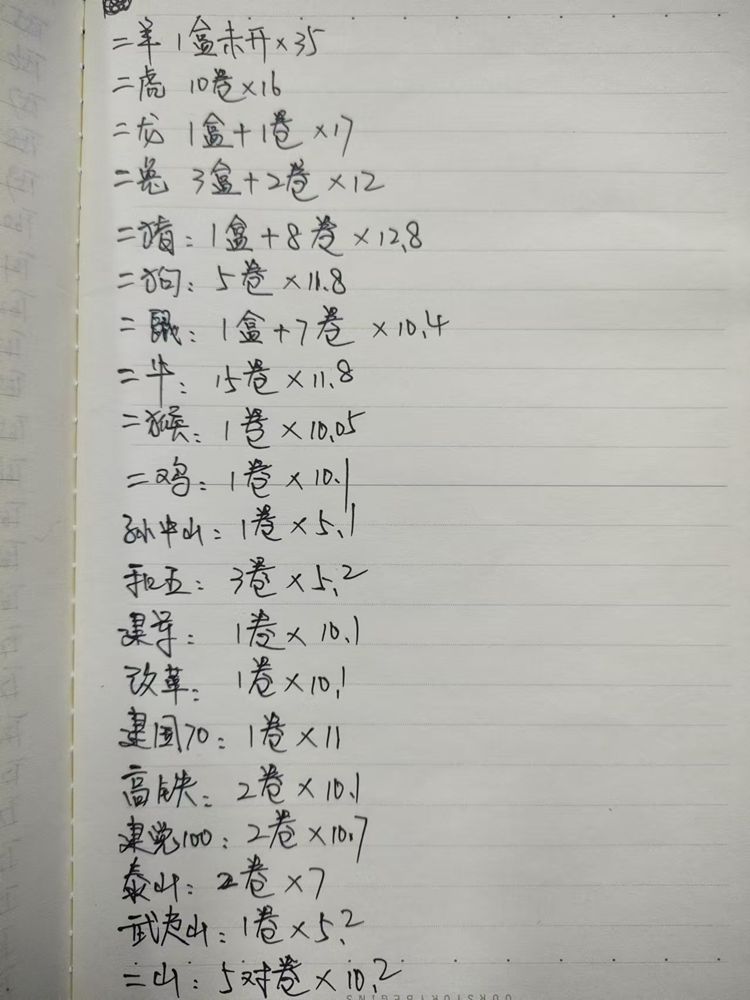 二羊 1盒未开×35
二虎 10卷×16
二龙 1盒+1卷 ×17
二兔 3盒+2卷 ×12
二猪：1盒+8卷 ×12.8
二狗：5卷 ×11.8
二鼠：1盒+7卷 ×10.4
二牛：15卷×11.8
二猴：1卷×10.05
二鸡：1卷×10.1
孙中山：1卷×5.1
和五：3卷×5.2
建军：1卷×10.1
改革：1卷×10.1
建国70：1卷×11
高铁：2卷×10.1
建党100：2卷×10.7
泰山：2卷×7
武夷山：1卷×5.2
二山：5对卷×10.2
OURSTORYBEGINS